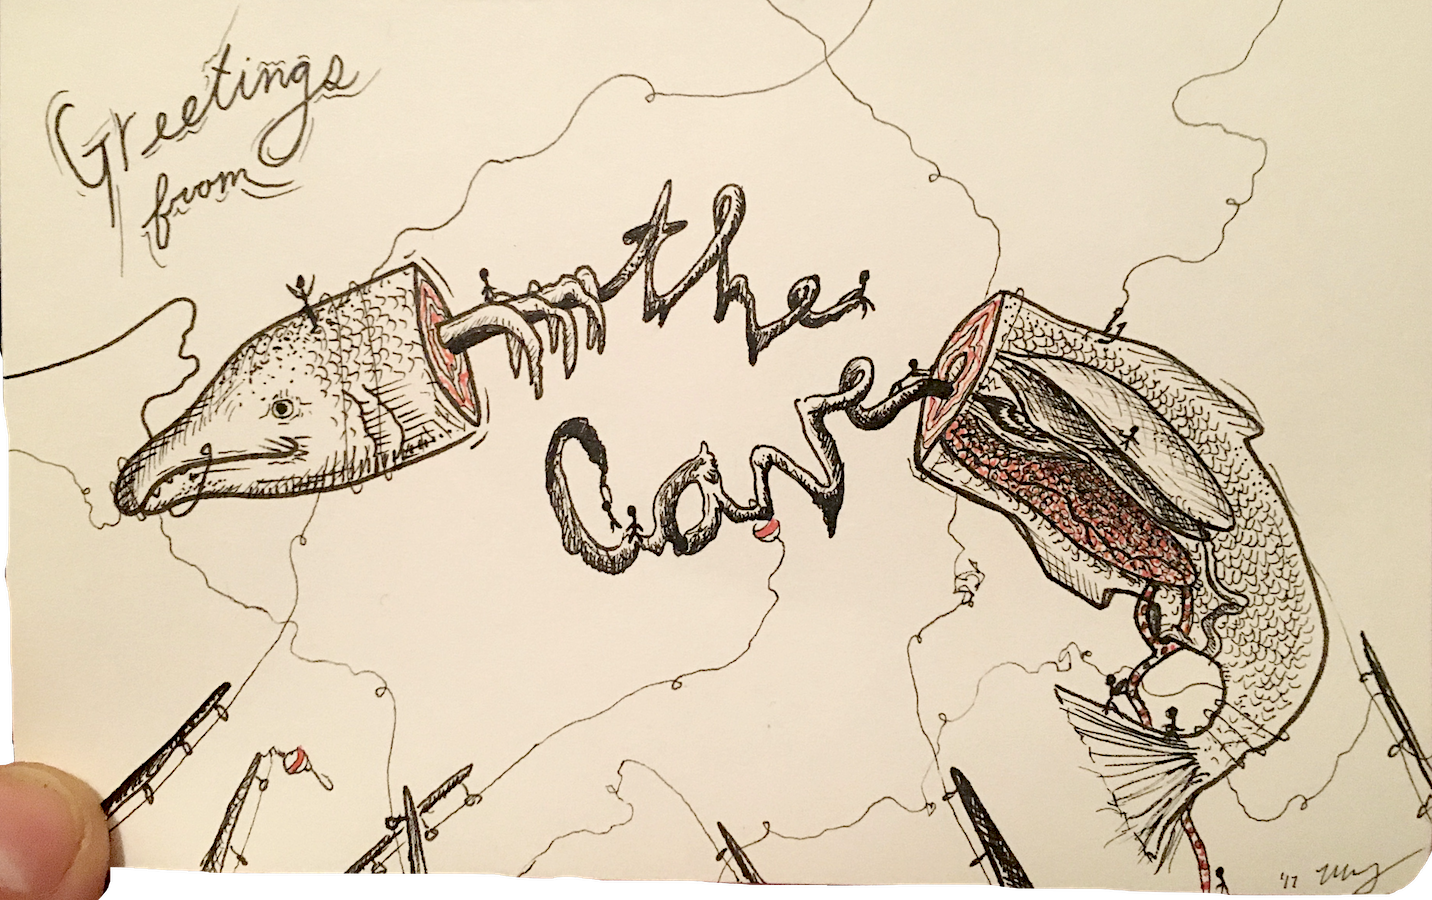 Greetings
from
the
'17